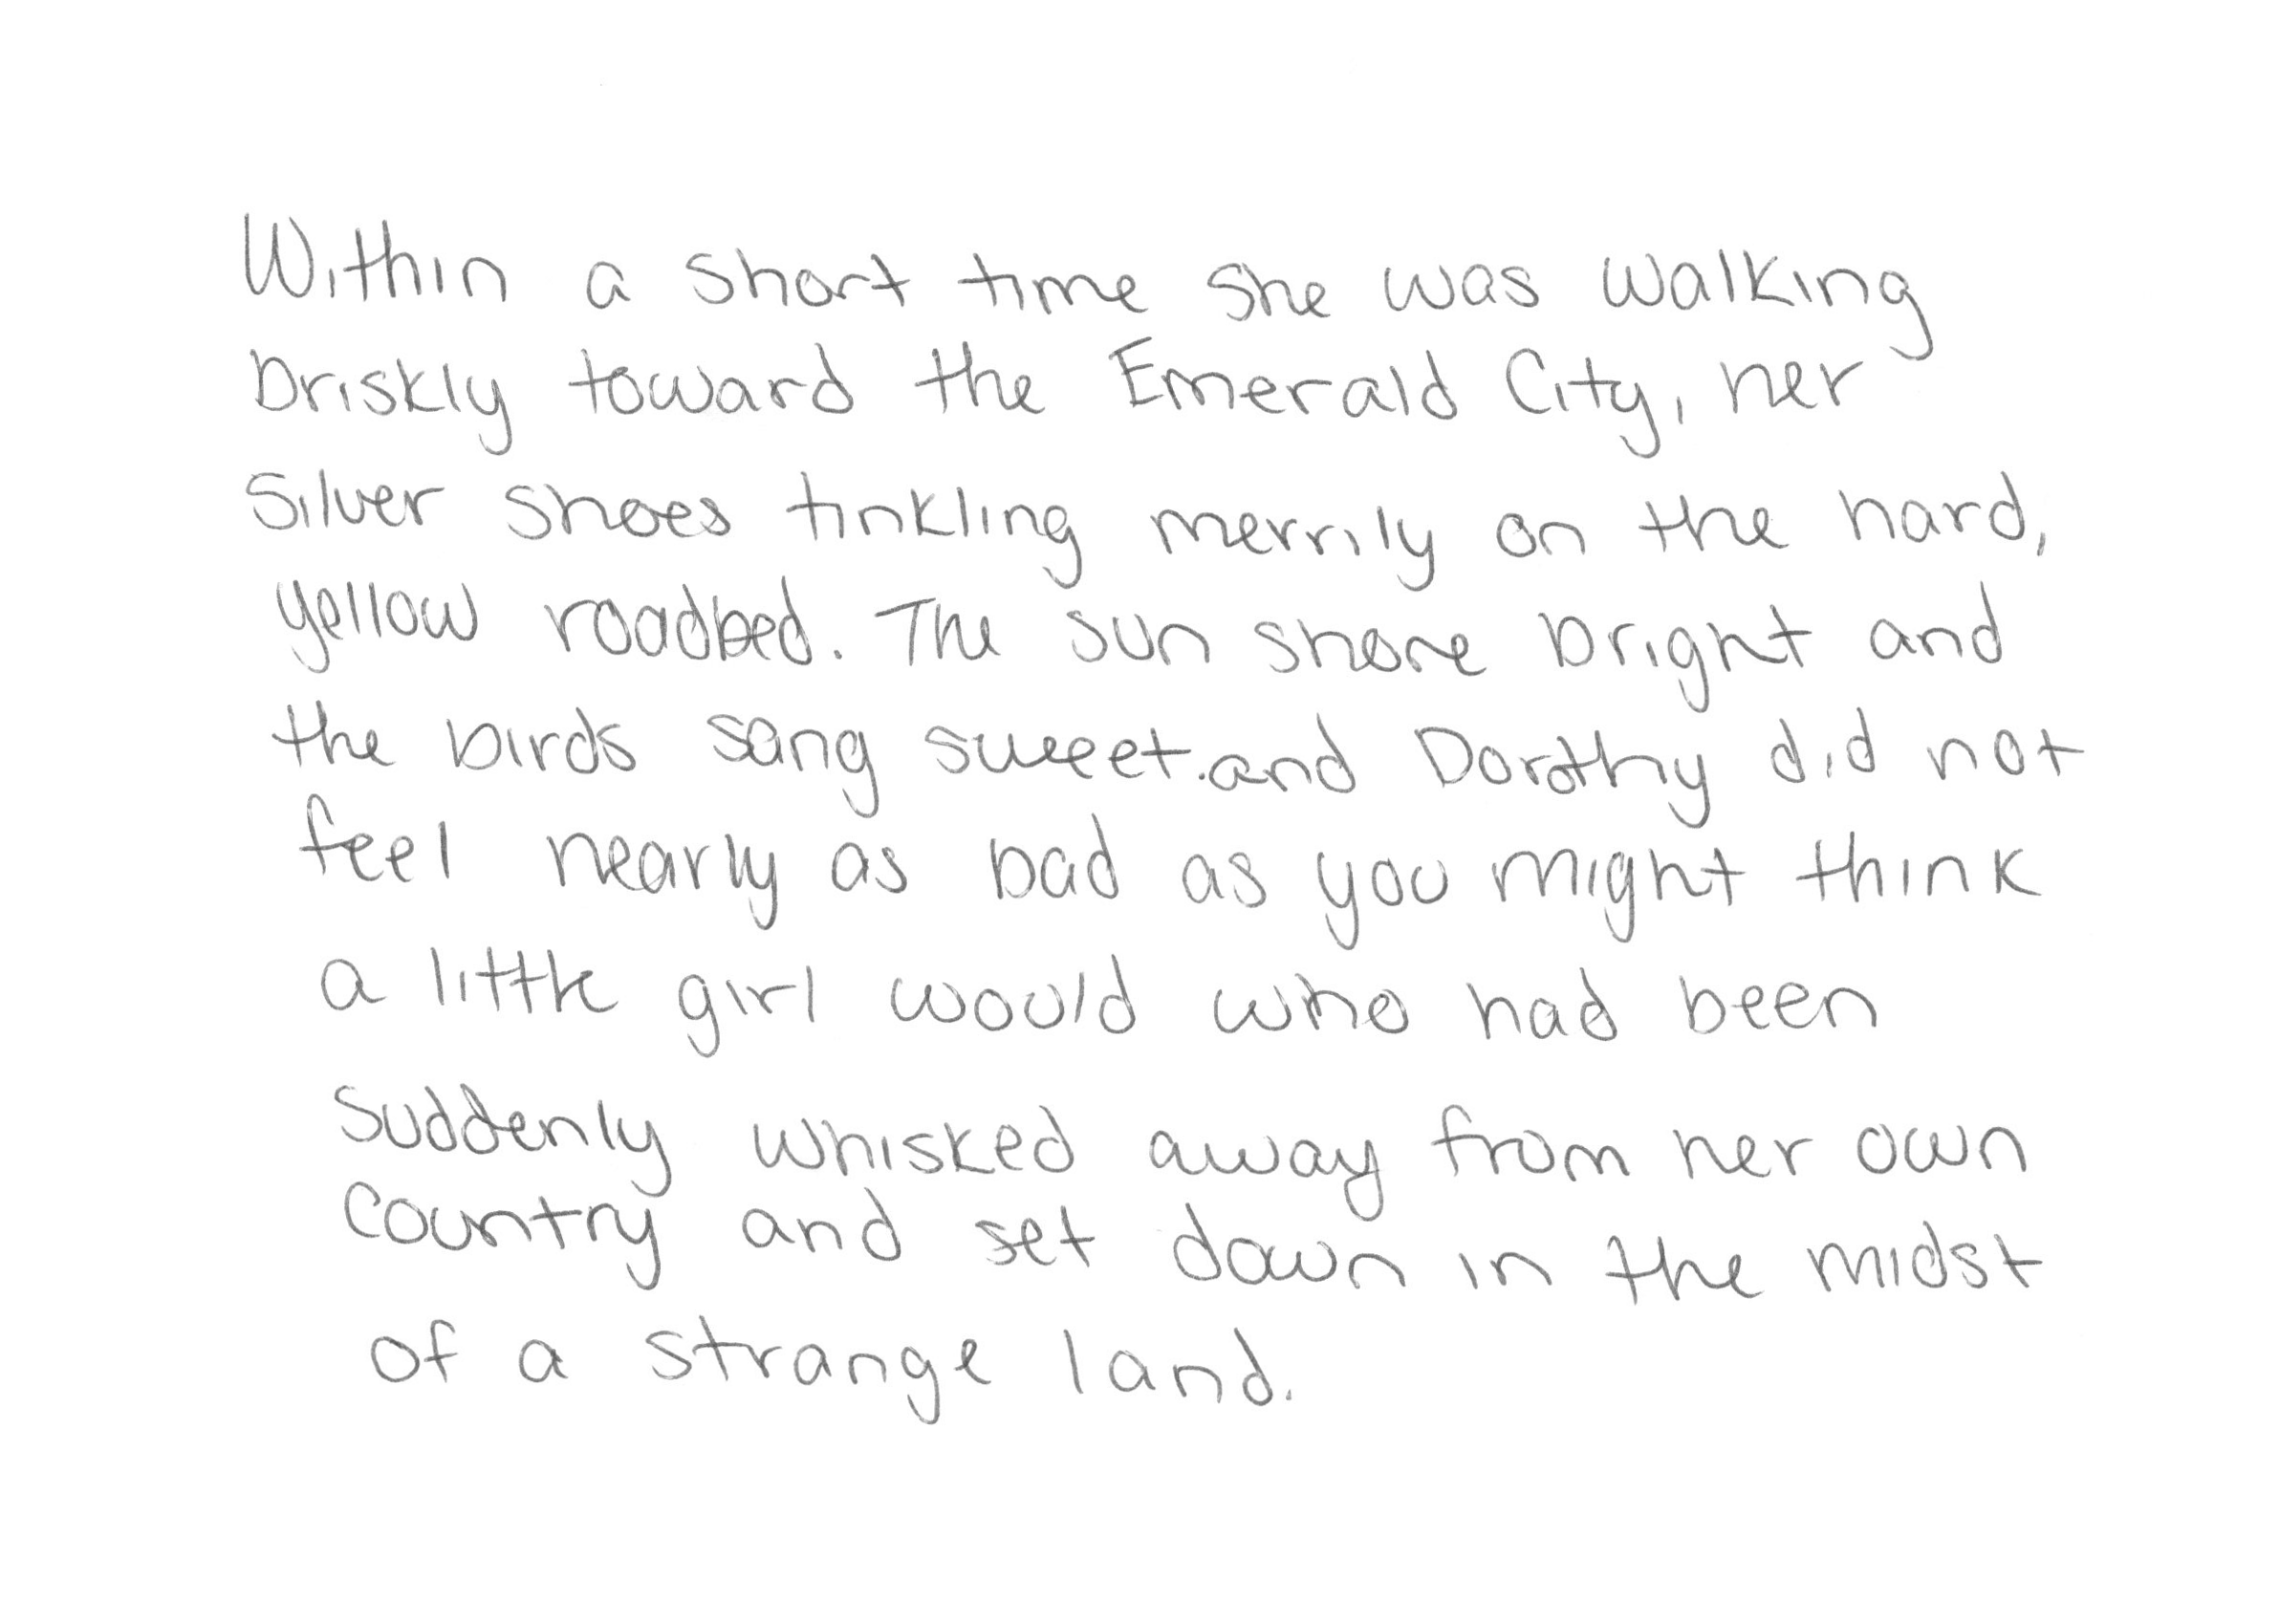 Within a short time she was walking
briskly toward the Emerald City, her
Silver shoes tinkling merrily on the hard,
yellow roadbed. The sun shone bright and
the birds sang sweet.and Dorothy did not
feel nearly as bad as you might think
a little girl would who had been
suddenly whisked away from her own
country and set down in the midst
of a strange land.